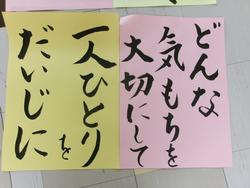 どんな
気もちを
大切にして
一人ひとり
を
だいじに